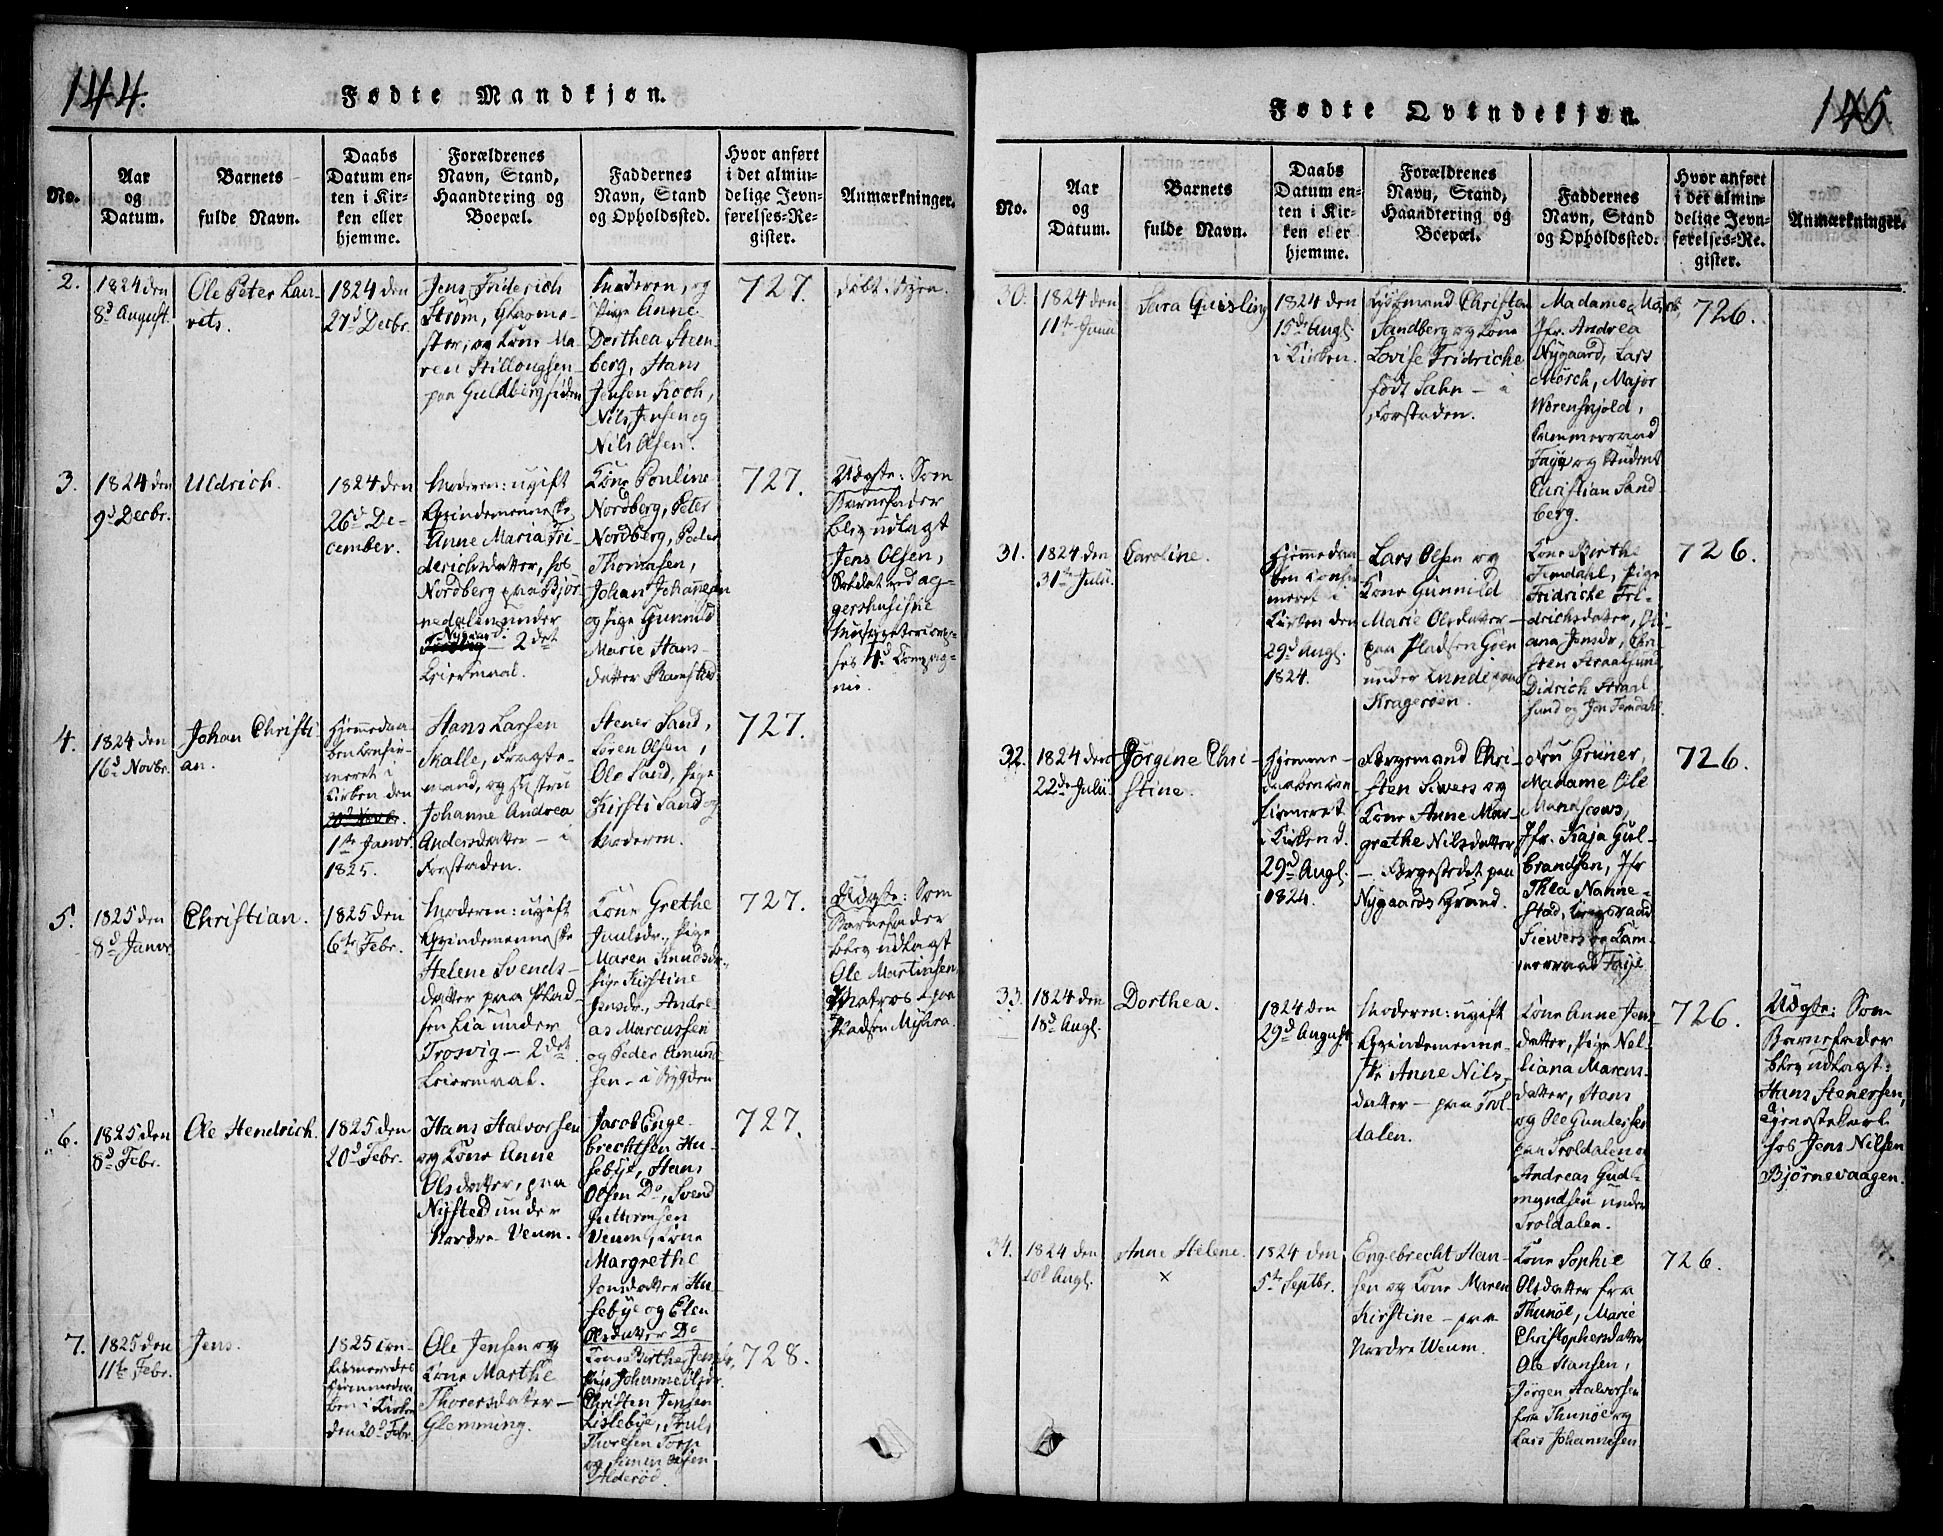 144.
Fødte Mandkjøn.
No.
Aar
og
Datum.
Barnets
fulde Navn.
Daabs
Datum en-
ten i Kir-
ken eller
hjemme.
Forældrenes
Navn, Stand,
Haandtering og
Boepæl.
Faddernes
Navn, Stand
og Opholdssted.
Hvor anført
i det almin-
delige Jevn-
førelses-Re-
gister.
Anmærkninger.
2.
1824 den
8d August.
Ole Peter Lau-
rets.
1824 den
27d Decbr.
Jens Friderich
Strøm, Glasme-
ster, og Kone Ma-
ren Stillougsen
paa Guldbergsiden
Moderen, og
Pige Anne
Dorthea Steen-
berg, Hans
Jensen Koch,
Nils Jensen og
Nils Olsen.
727.
døbt i Byen.
3.
1824 den
9d Decbr.
Uldrich.
1824 den
26d De-
cember.
Moderen: ugift
Qvindemenneske
Anne Maria Fri-
derichsdatter, hos
Nordberg paa Bjør-
nedalen under
Nygaard
— 2det
Leiermaal.
Kone Pouline
Nordberg, Peter
Nordberg, Peder
Thomasen,
Johan Johannesen
og Pige Gunnild
Marie Hans-
datter Ramstad.
727.
Udgte: Som
Barnefader
blev udlagt
Jens Olsen,
Soldat ved ag-
gershusiske
Musqueteercorps-
ses 4d Compag-
nie.
4.
1824 den
16d Novbr.
Johan Christi-
an.
Hjemmedaa-
ben Confir-
meret i
Kirken den
1te Janvr.
1825.
Hans Larsen
Skalle, Fragte-
mand, og Hustru
Johanne Andrea
Andersdatter — i
Forstaden.
Stener Sand,
Søren Olsen,
Ole Sand, Pige
Kirsti Sand og
Moderen.
727.
5.
1825 den
8d Janvr.
Christian.
1825 den
6te Febr.
Moderen: ugift
Qvindemenneske
Helene Svends-
datter paa Plad-
sen Lia under
Trosvig — 2det
Leiermaal.
Kone Grethe
Juulsdr., Pige
Maren Knudsdr.,
Pige Kirstine
Jensdr., Andre-
as Marcussen
og Peder Amund-
sen — i Bygden
727.
Udgte: Som
Barnefader
blev udlagt
Ole Martinsen,
Matros — paa
Pladsen Myhra.
6.
1825 den
8d Febr.
Ole Hendrich.
1825 den
20d Febr.
Hans Halvorsen
og Kone Anne
Olsdatter, paa
Nysted under
Nordre Veum.
Jacob Enge-
brechtsen Hu-
sebye, Hans
Olsen Do, Svend
Guttormsen
Veum, Kone
Margrethe
Jonsdatter Hu-
sebye og Elen
Olsdatter Do
727.
7.
1825 den
11te Febr.
Jens.
1825 Con-
firmeredes
Hjemmedaa-
ben i Kirken
den 20d Febr.
Ole Jensen og
Kone Marthe
Thorersdatter —
Glemming.
Kone Birthe Jensdr.,
Pige Johanne Olsdr.
Christen Jensen
Lislebye, Truls
Thoresen Torp
og Simen Olsen
Alderød.
728.
145
Fødte Qvindekjøn.
No.
Aar
og
Datum.
Barnets
fulde Navn.
Daabs
Datum en-
ten i Kir-
ken eller
hjemme.
Forældrenes
Navn, Stand,
Haandtering og
Boepæl.
Faddernes
Navn, Stand
og Opholdssted.
Hvor anført
i det almin-
delige Jevn-
førelses-Re-
gister.
Anmærkninger.
30.
1824 den
11te Junii
Sara Quisling
1824 den
15de Augl.
i Kirken.
Kjøbmand Christen
Sandberg og Kone
Lovise Fridriche
født Sahn — i
Forstaden.
Madame Mørch,
Jfr. Andrea
Nygaard, Lars
Mørch, Major
Wørenskjold,
Kammerraad
Faye og Student
Christian Sand-
berg.
726.
31.
1824 den
31te Julii.
Caroline.
Hjemmedaa-
ben Confir-
meret i
Kirken den
29d Augl.
1824.
Lars Olsen og
Kone Gunnild
Marie Olsdatter —
paa Pladsen Goen
under Lunde paa
Kragerøen.
Kone Birthe
Femdahl, Pige
Fridriche Fri-
drichsdatter,
ana Jensdr., Chri-
sten Straalsund,
Didrich Straal-
sund og Jon Femdahl.
726.
32.
1824 den
22de Julii.
Jørgine Chri-
stine.
Hjemme-
daaben Con-
firmeret
i Kirken d.
29d Augl.
1824.
Færgemand Chri-
sten Siwers og
Kone Anne Mar-
grethe Nilsdatter
— Færgestedet paa
Nygaards Grund.
Fru Grüner,
Madame Ole
Jfr. Kaja Gul-
brandsen, Jfr
Thea Nanne-
stad, Krigsraad
Siewers og Kam-
merraad Faye
726.
33.
1824 den
18d Augl.
Dorthea.
1824 den
29d August
Moderen: ugift
Qvindemenne-
ske Anne Nils-
datter — paa Trol-
dalen.
Kone Anne Jens-
datter, Pige Nel-
liana Marcus-
datter, Hans
og Ole Gundersen
paa Troldalen og
Andreas Gud-
myndsen under
Troldalen.
726.
Udgte: Som
Barnefader
blev udlagt:
Hans Stenersen,
Tjenestekarl
hos Jens Nilsen
Bjørnevaagen.
34.
1824 den
10d Augl.
Anne Helene.
×
1824 den
5te Septbr.
Engebrecht Han-
sen og Kone Maren
Kirstine — paa
Nordre Weum.
Kone Sophie
Olsdatter fra
Thunøe, Marie
Christophersdatter
Ole Hansen,
Jørgen Halvorsen
fra Thunøe og
Lars Johannesen
726.